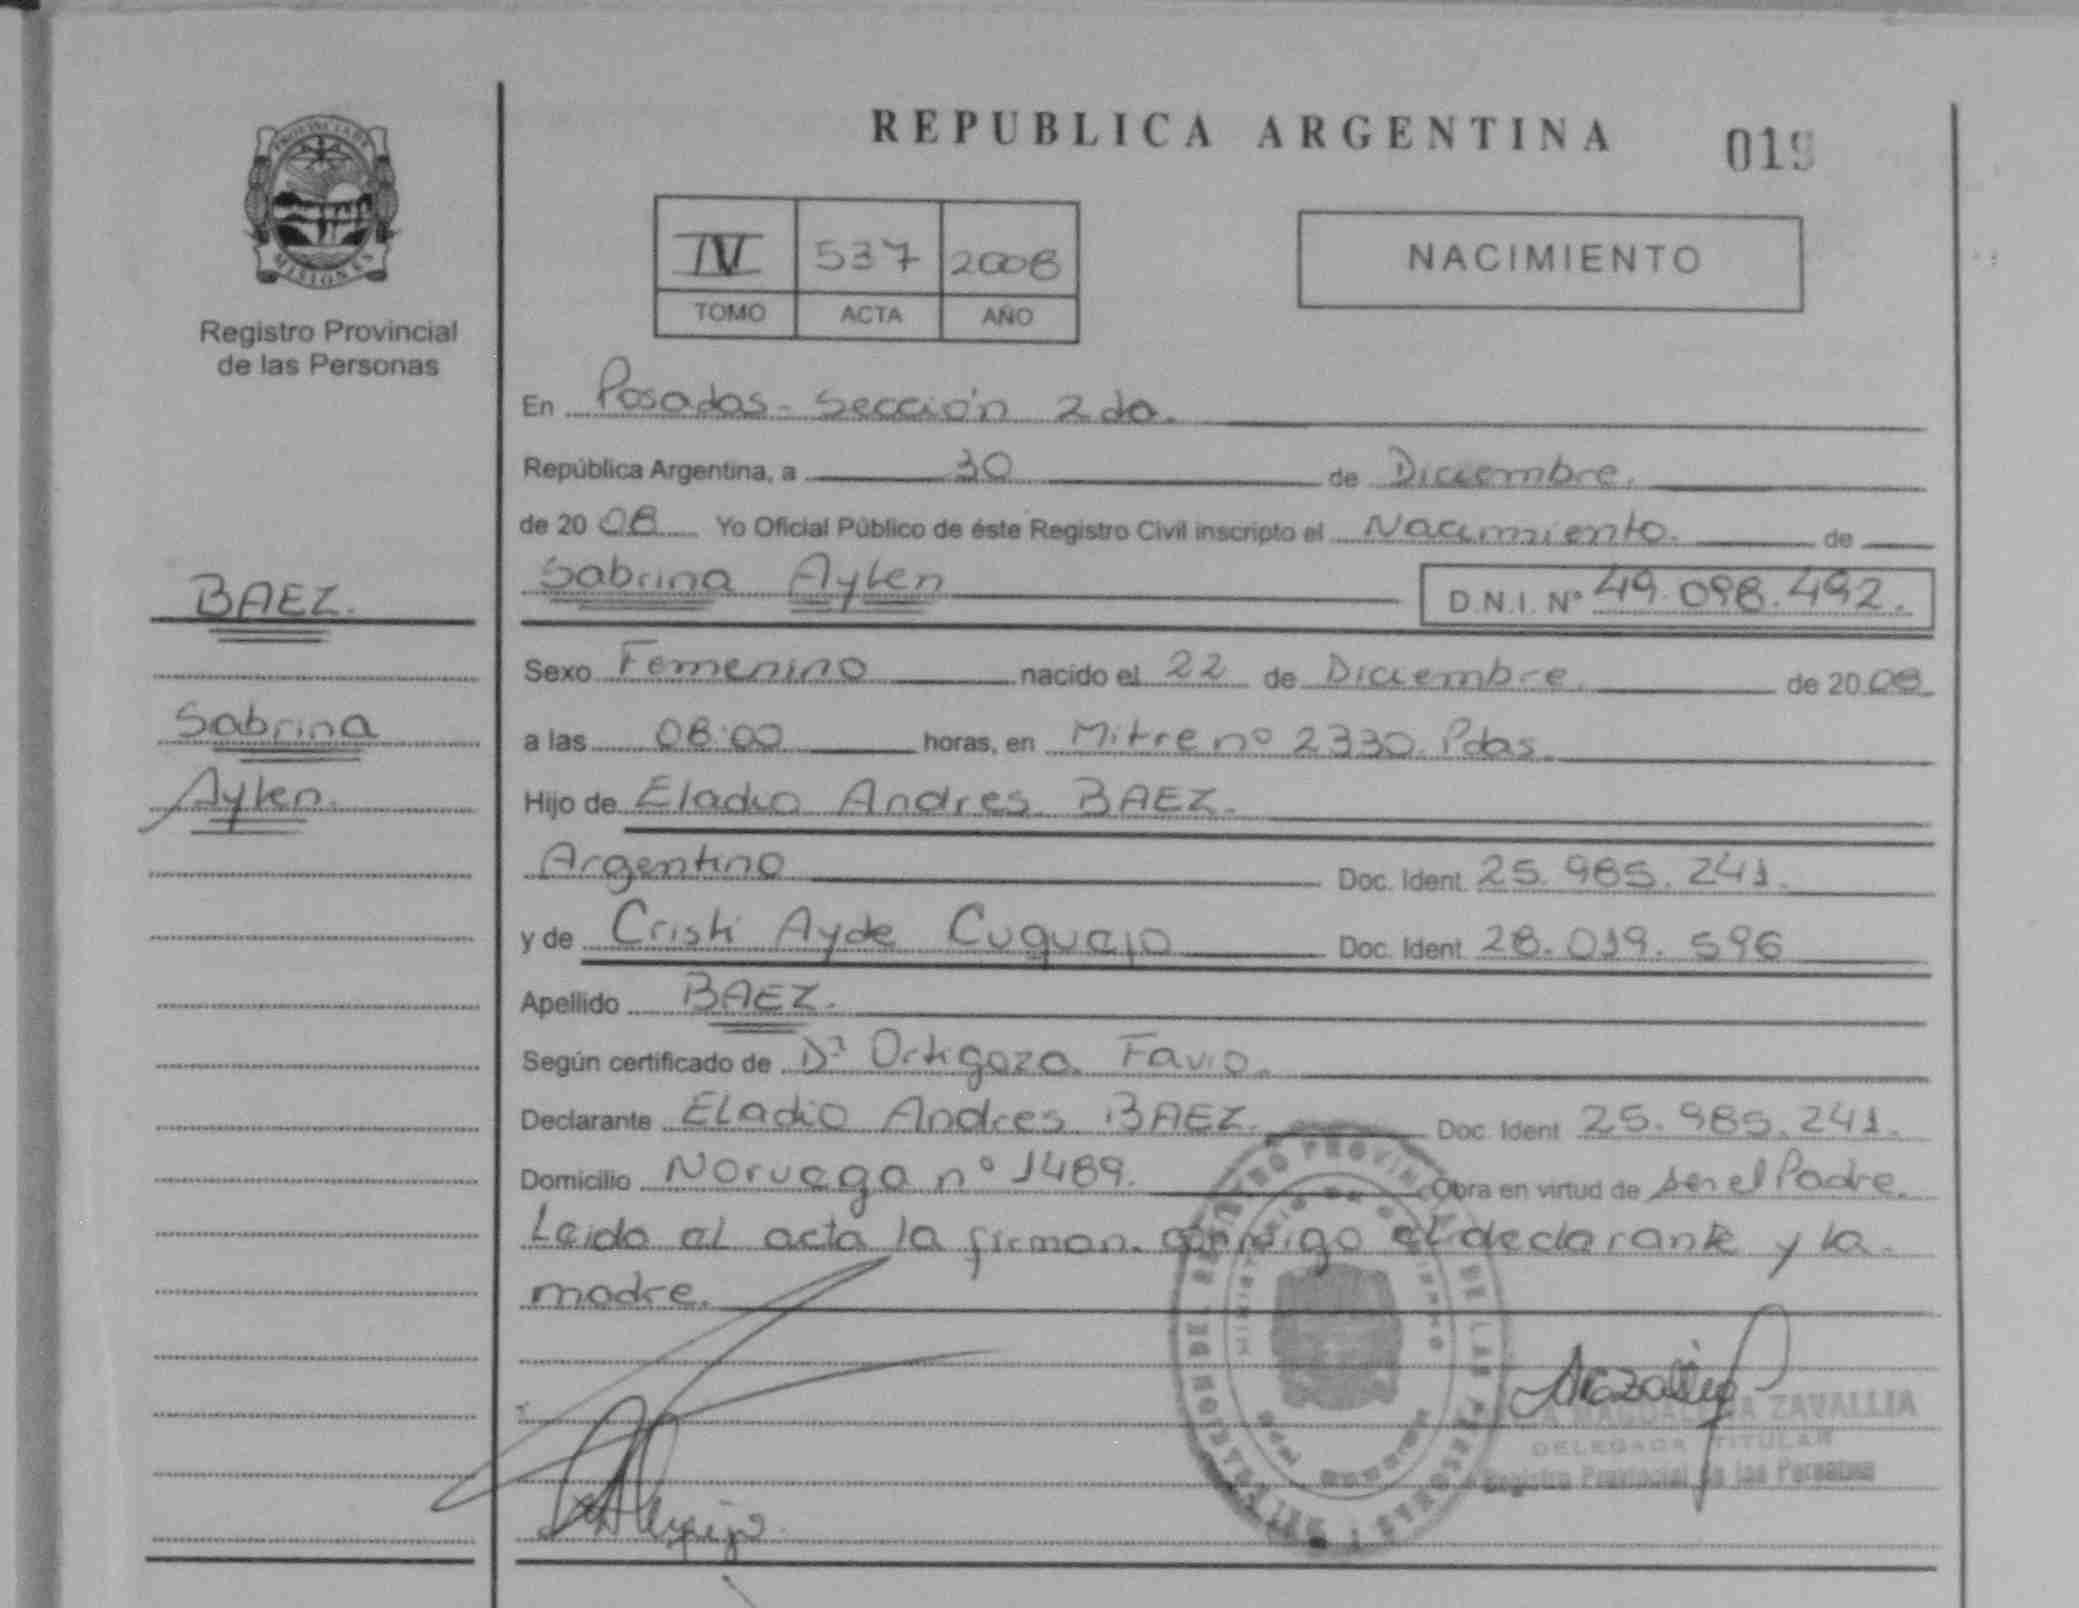 REPUBLICA ARGENTINA 019
PROVINCIA DE
MISIONES
Registro Provincial
de las Personas
IV 537 2008
TOMO ACTA AÑO
NACIMIENTO
En Posadas - Sección 2da.
República Argentina, a 30 de Diciembre.
de 20 08 Yo Oficial Público de éste Registro Civil inscripto el Nacimiento. de
BAEZ.
Sabrina Aylen D.N.I. Nº 49.098.492.
Sexo Femenino nacido el 22 de Diciembre. de 20 08
Sabrina
a las 08:00 horas, en Mitre nº 2330. Pdas.
Aylen.
Hijo de Eladio Andres BAEZ.
Argentino Doc. Ident. 25.985.241.
y de Cristi Ayde Cuguejo Doc. Ident. 28.019.596
Apellido BAEZ.
Según certificado de Dr Ortigoza Favio.
Declarante Eladio Andres BAEZ. Doc. Ident 25.985.241.
Domicilio Noruega nº 1489. Obra en virtud de ser el Padre.
Leida el acta la firman conmigo el declarante y la
madre.
REGISTRO PROVINCIAL DE LAS PERSONAS
MINISTERIO DE GOBIERNO
MAGDALENA ZAVALLIA
DELEGADA TITULAR
Registro Provincial de las Personas